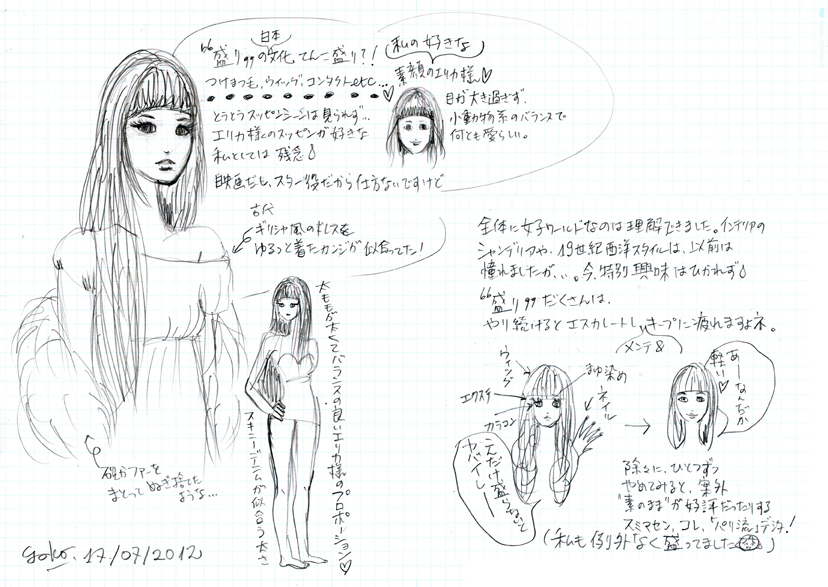 日本
“盛り”の文化 てんこ盛り?!
つけまつ毛、ウィッグ、コンタクトetc...
とうとうスッピンシーンは見られず...
エリカ様のスッピンが好きな
私としては 残念
映画だも、スター役だから仕方ないですけど
私の好きな
素顔のエリカ様
目が大き過ぎず、
小動物系のバランスで
何とも愛らしい。
古代
ギリシャ風のドレスを
ゆるっと着たカンジが似合ってた!
確かファーを
まとって ぬぎ捨てた
ような...
太ももが太くてバランスの良いエリカ様のプロポーション♡
スキニーデニムが似合う太さ
全体に女子ワールドなのは理解できました。インテリアの
シャンデリアや、19世紀西洋スタイルは、以前は
憧れましたが、..。今、特別興味はひかれず
“盛り”だくさんは、
やり続けるとエスカレートし、キープに疲れますよネ。
メンテ&
ウィッグ
まゆ染め
エクステ
ネイル
カラコン
これだけ盛らないと
ヤバイし〜
あーなんだか
軽い♡
除々に、ひとつずつ
やめてみると、案外
“素のまま”が好評だったりする
スミマセン、コレ、「パリ流」デス、!
(私も例外なく盛ってました)
yoko. 17/07/2012